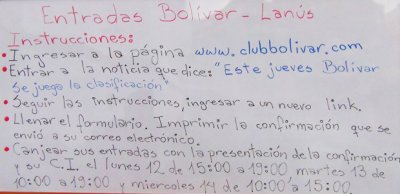 Entradas Bolívar - Lanús
Instrucciones:
• Ingresar a la página www.clubbolivar.com
• Entrar a la noticia que dice: "Este jueves Bolívar
se juega la clasificación"
• Seguir las instrucciones, ingresar a un nuevo link.
• Llenar el formulario. Imprimir la confirmación que se
envió a su correo electrónico.
• Canjear sus entradas con la presentación de la confirmación
y su C.I. el lunes 12 de 15:00 a 19:00 martes 13 de
10:00 a 19:00 y miercoles 14 de 10:00 a 15:00.